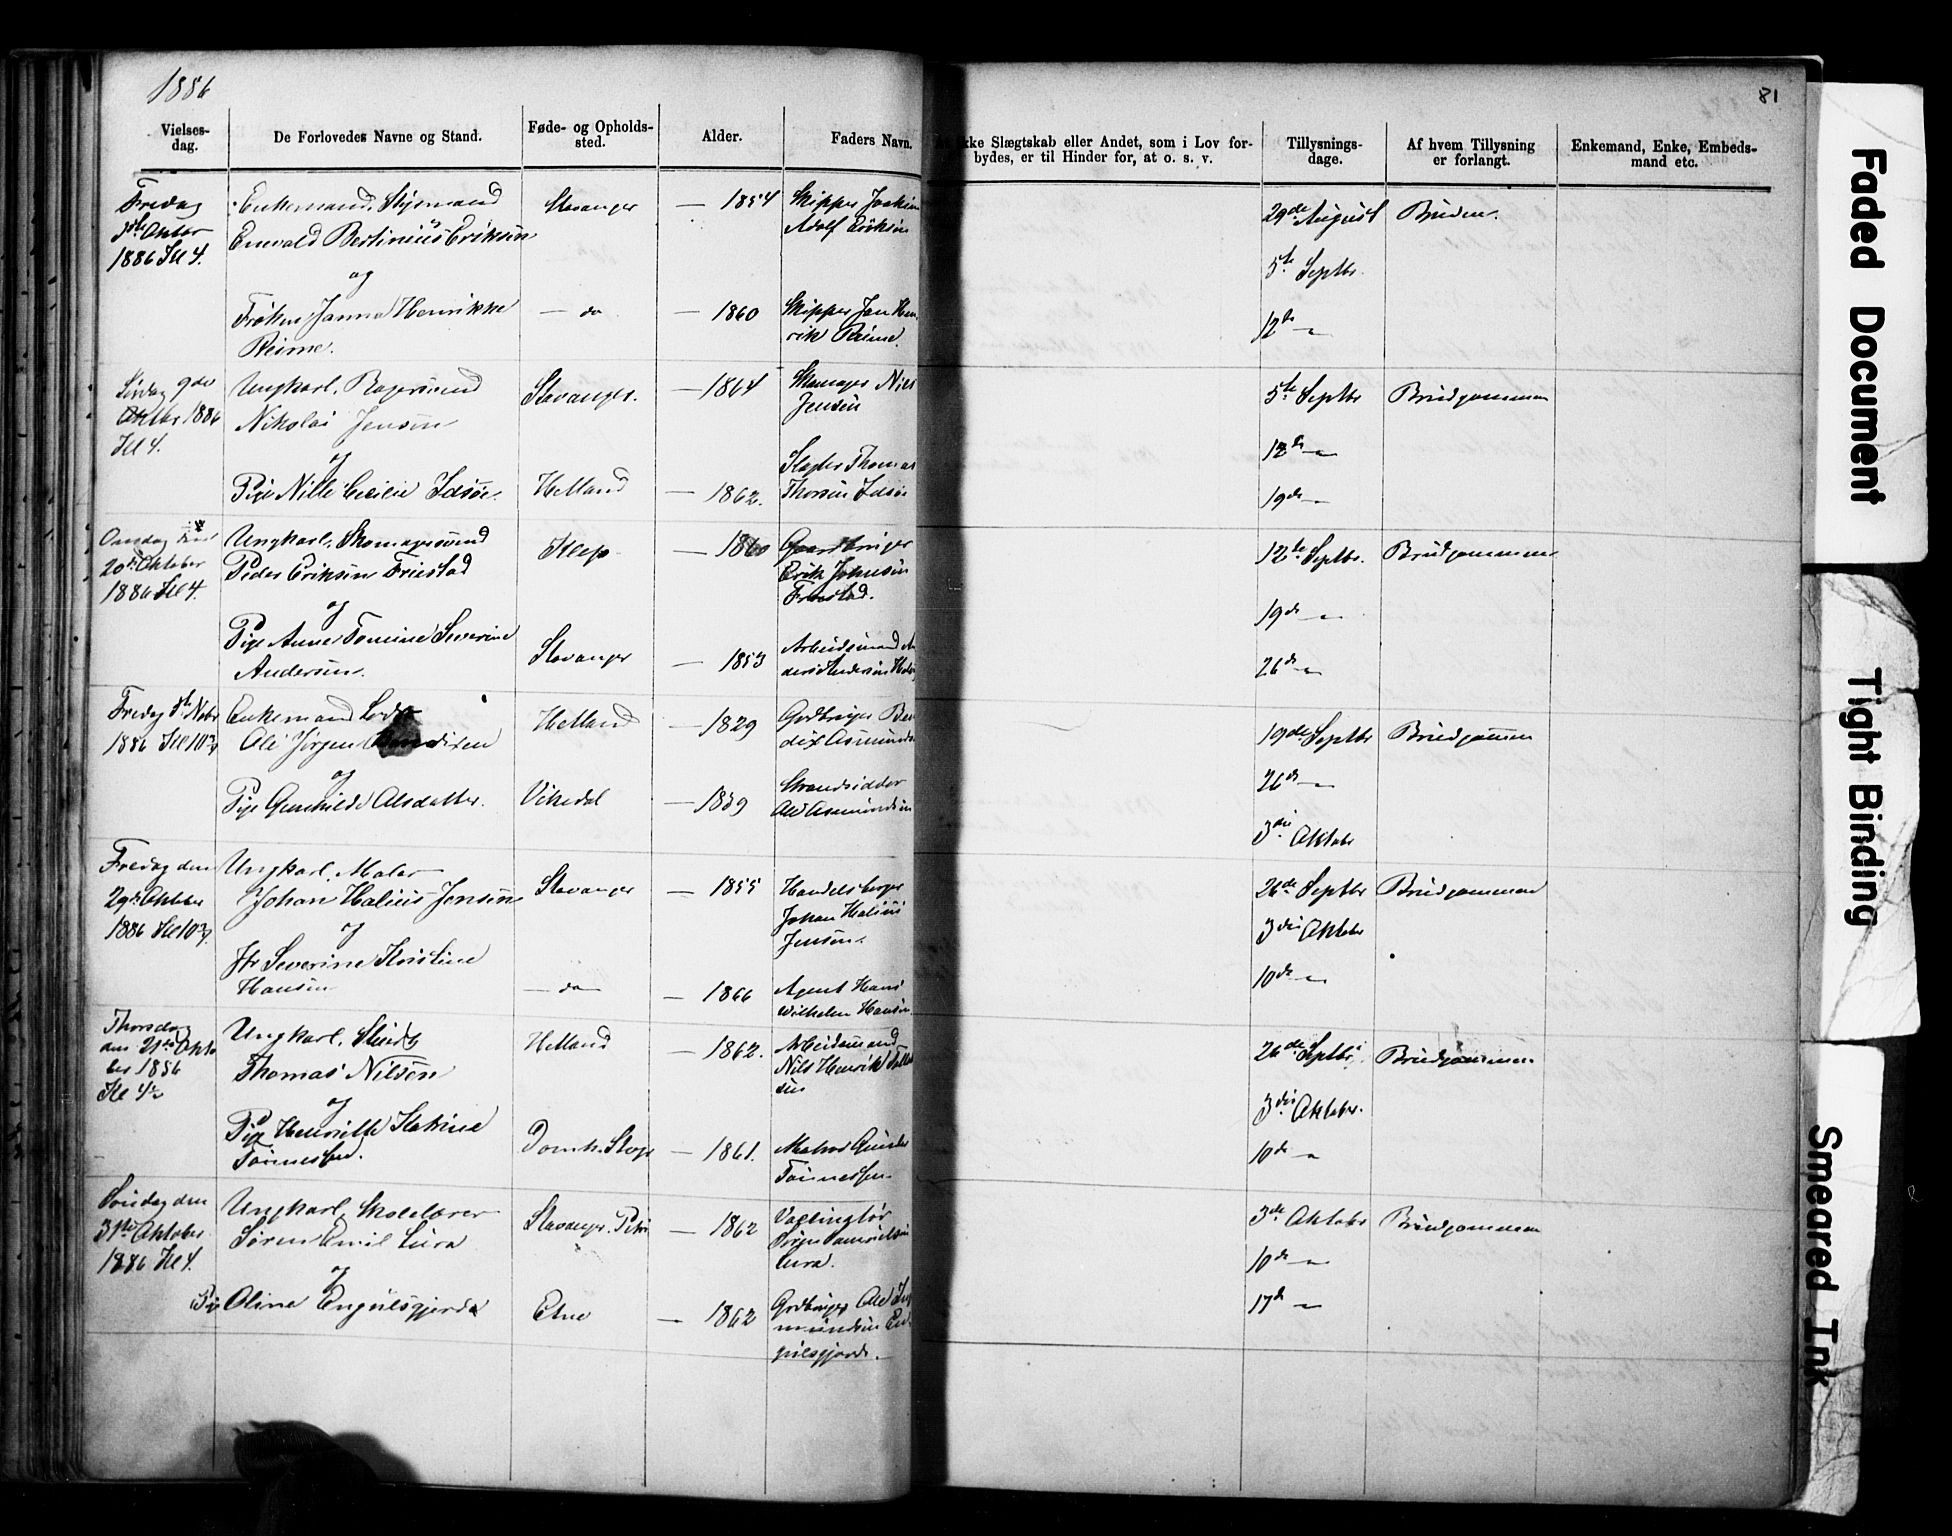 1886
81
Vielses-
dag.
De Forlovedes Navne og Stand.
Føde- og Opholds-
sted.
Alder.
Faders Navn.
ikke Slægtskab eller Andet, som i Lov for-
bydes, er til Hinder for, at o. s. v.
Tillysnings-
dage.
Af hvem Tillysning
er forlangt.
Enkemand, Enke, Embeds-
mand etc.
Fredag
1886 Kl 4.
Enkemand, Styrmand
Enevald Bertinius Eriksen
og
Frøken Janna Henrikke
Reime.
Stavanger
— do
— 1854
— 1860
Skipper Joakim
Adolf Eriksen
Skipper Jan Hen
rik Reime.
29de August
5te Septbr.
12te —"—
Bruden.
9de
Oktbr. 1886
Kl 4.
Ungkarl,
Nikolai Jensen
og
Pige Nille Cecilie Idsøe.
Stavanger.
Hetland
— 1864
— 1862.
Skomager Niels
Jensen
Slagter Thomas
Thorsen Idsøe
5te Septbr
12te —"—
19de —"—
Brudgommen
Onsdag
20de Oktober
1886 Kl 4.
Ungkarl, Skomagersvend
Peder Eriksen Friestad
og
Pige Anne Tomine Severine
Andersen.
Klep
Stavanger
— 1860
— 1853
Gaardbruger
Erik Johnsen
Friestad.
Arbeidsmand
12te Septbr.
19de —"—
26de —"—
Brudgommen
Fredag
1886 Kl 10¾
Enkemand Lods
Ole Jørgen Bendixen
og
Pige Gunhilde Olsdatter.
Hetland
Vikedal
— 1829
— 1839
Gdbruger Ben
dix Asmunds
Strandsidder
Ole Asmundsen
19de Septbr
26de —"—
3die Oktobr
Brudgommen
Fredag den
29de Oktober
1886 Kl 10¾.
Ungkarl, Maler
Johan Halius Jensen
og
Jfr Severine Kristine
Hansen
Stavanger
— do —
— 1855
— 1866
Handelsborger
Johan Halius
Jensen.
Agent Hans
Wilhelm Hansen.
26de Septbr
3die Oktober
10de —"—
Brudgommen
Thorsdag
den 21de Okto
ber 1886
Ungkarl,
Thomas Nilsen
og
Pige Henriette Katrine
Tønnessen.
Hetland
Domk. Stvgr
— 1862.
— 1861.
Arbeidsmand
Nils Henrik
sen
Matros
Tønnessen
26de Septbr.
3die Oktober.
10de —"—
Brudgommen
Søndag den
31te Oktober
1886 Kl 4.
Ungkarl, Skolelærer
Søren Emil Lura
og
Pige Oline Engulsgjerde
Stavanger. Petri
Etne
— 1862
— 1862
Lura.
Gdbruger Ole
gulsgjerde.
3die Oktobr
10de —"—
17de —"—
Brudgommen
Faded Document
Tight Binding
Smeared Ink